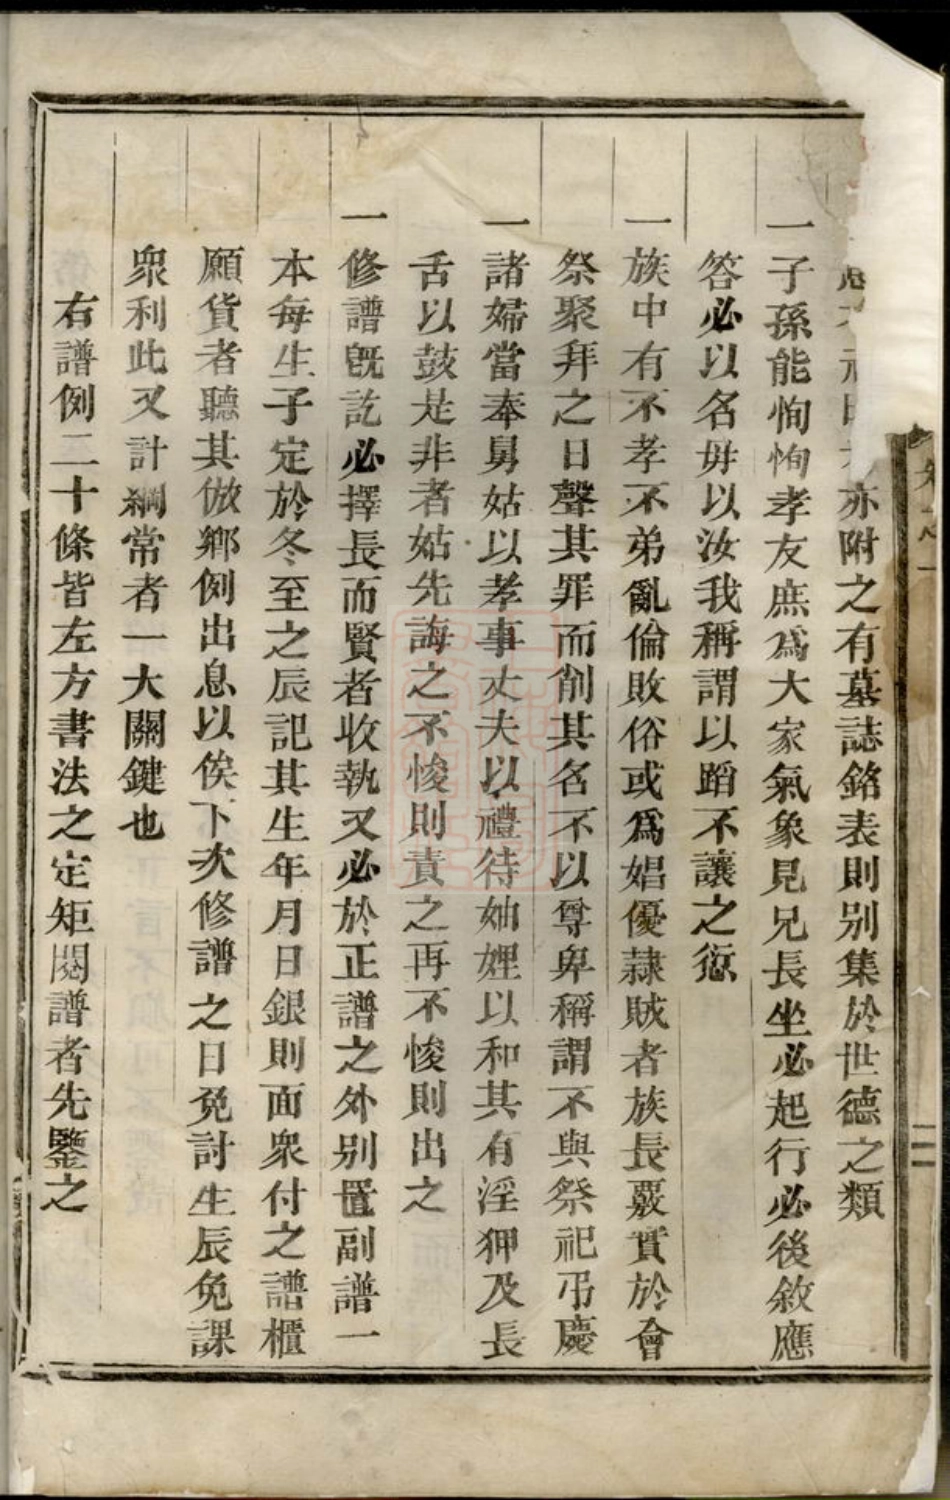 亦附之有墓誌銘表則别集於世德之類
一子孫能恂恂孝友庶爲大家氣象見兄長坐必起行必後敘應
答必以名毋以汝我稱謂以蹈不讓之愆
一族中有不孝不弟亂倫敗俗或爲娼優隷賊者族長覈實於會
祭聚拜之日聲其罪而削其名不以尊卑稱謂不與祭祀弔慶
一諸婦當奉舅姑以孝事丈夫以禮待妯娌以和其有淫狎及長
舌以鼓是非者姑先誨之不悛則責之再不悛則出之
一修譜旣訖必擇長而賢者收執又必於正譜之外别置副譜一
本每生子定於冬至之辰記其生年月日銀則面衆付之譜櫃
願貨者聽其倣鄉例出息以俟下次修譜之日免討生辰免課
衆利此又計綱常者一大關鍵也
右譜例二十條皆左方書法之定矩閱譜者先鑒之